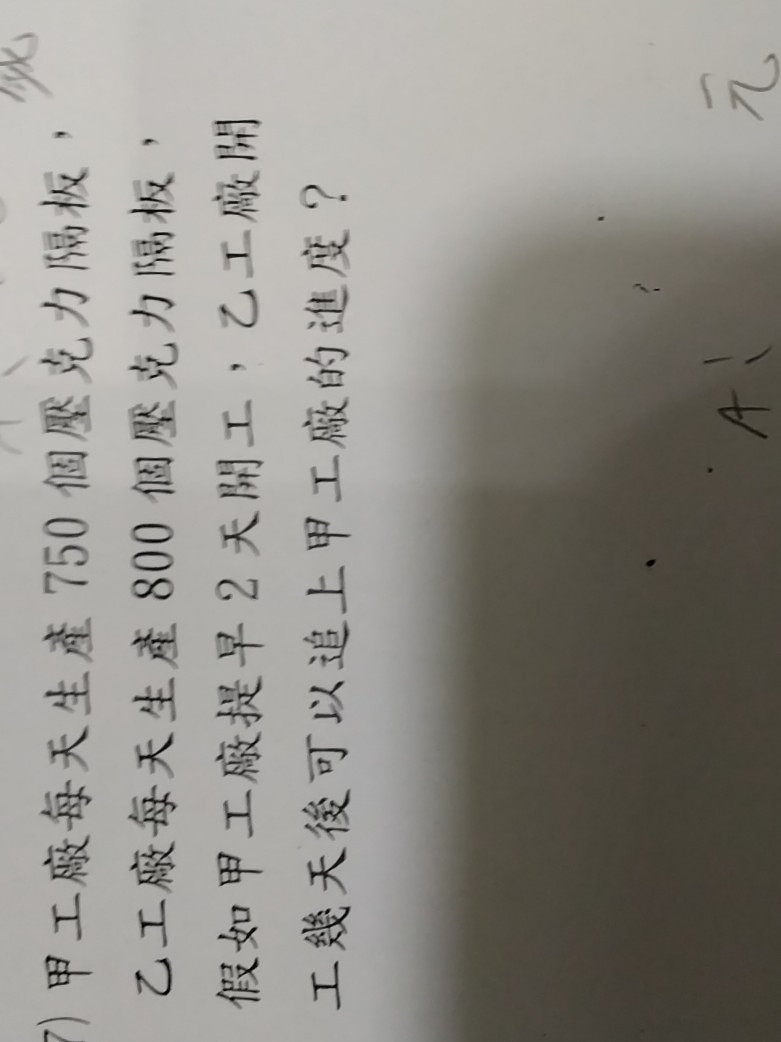 7) 甲工廠每天生產 750 個壓克力隔板，
乙工廠每天生產 800 個壓克力隔板，
假如甲工廠提早 2 天開工，乙工廠開
工幾天後可以追上甲工廠的進度？
元
A: